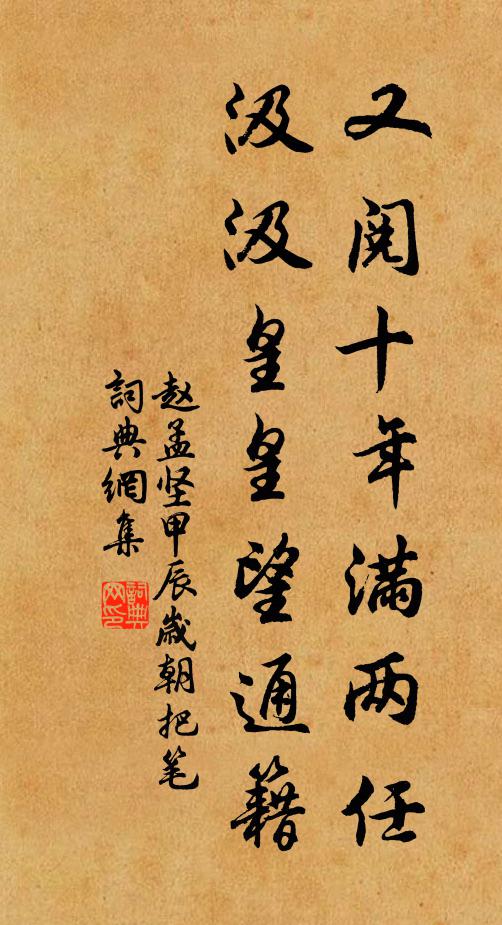 又阅十年满两任
汲汲皇皇望通籍
赵孟坚甲辰岁朝把笔
詞典網集
詞典网印